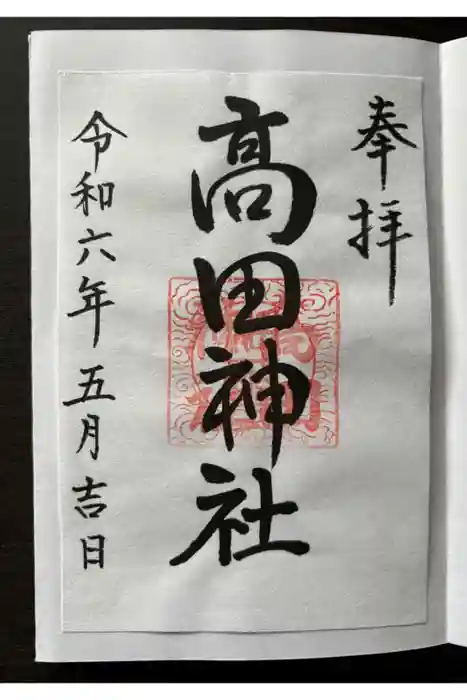 奉拝
高田神社
令和六年五月吉日